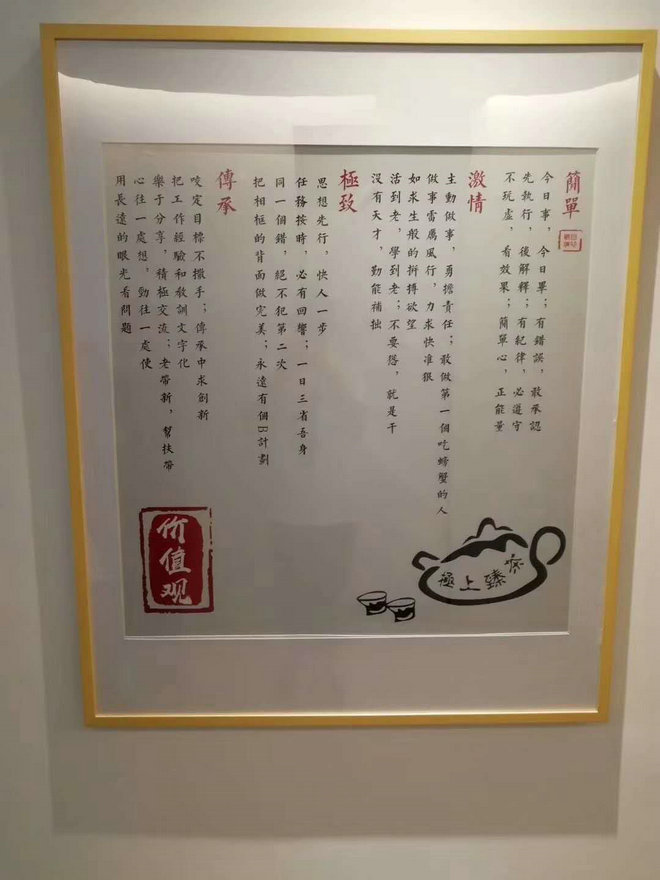 簡單
今日事，今日畢；有錯誤，敢承認
先執行，後解釋；有紀律，必遵守
不玩虛，看效果；簡單心，正能量
激情
主動做事，勇擔責任；敢做第一個吃螃蟹的人
做事雷厲風行，力求快準狠
如求生般的拚搏欲望
活到老，學到老；不要慫，就是干
沒有天才，勤能補拙
極致
思想先行，快人一步
任務按時，必有回響；一日三省吾身
同一個錯，絕不犯第二次
把相框的背面做完美；永遠有個B計劃
傳承
咬定目標不撒手；傳承中求創新
把工作經驗和教訓文字化
樂于分享，積極交流；老帶新，幫扶帶
心往一處想，勁往一處使
用長遠的眼光看問題
价值观
極上臻茶